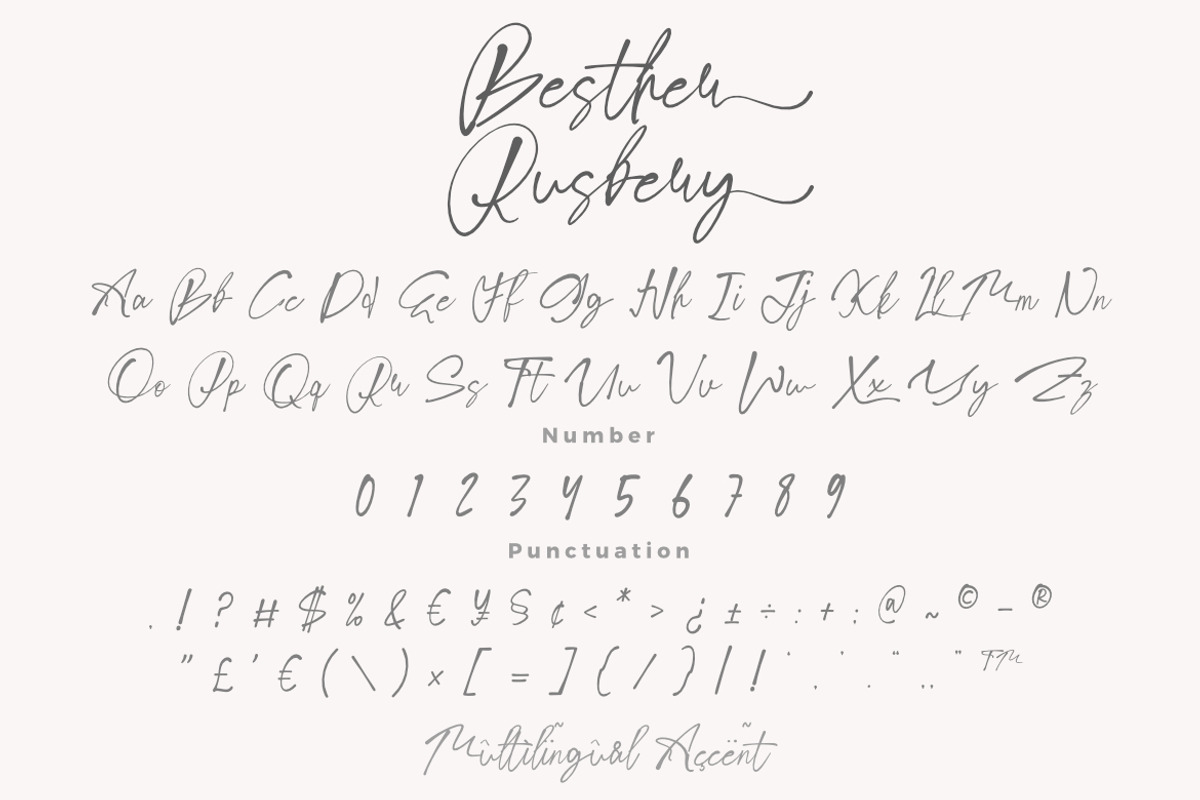 Besther
Rusbery
Aa Bb Cc Dd Ee Ff Gg Hh Ii Jj Kk Ll Mm Nn
Oo Pp Qq Rr Ss Tt Uu Vv Ww Xx Yy Zz
Number
0 1 2 3 4 5 6 7 8 9
Punctuation
. ! ? # $ % & € ¥ § ¢ < * > ¿ ± ÷ : + ; @ ~ © – ®
" £ ' € ( \ ) × [ = ] { / } | ! ‘ , ’ . “ „ ” ™
Mûltìlĩngûál Aşcëñt